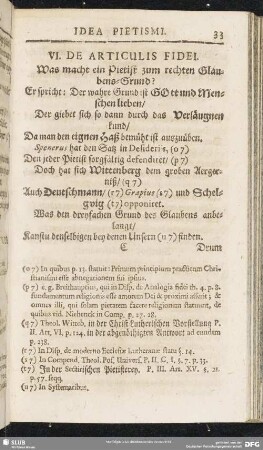 IDEA PIETISMI. 33
VI. DE ARTICULIS FIDEI.
Was macht ein Pietist zum rechten Glau-
bens-Grund?
Er spricht: Der wahre Grund ist GOtt und Men-
schen lieben/
Der giebet sich so dann durch das Versäugnen
kund/
Da man den eignen Haß bemüht ist auszuüben.
Spenerus hat den Satz in Desideriis, (o 7)
Den jeder Pietist sorgfältig defendiret/ (p 7)
Doch hat sich Wittenberg dem groben Aerger-
niß/ (q 7)
Auch Deutschmann/ (r 7) Grapius (s 7) und Schel-
gvig (t 7) opponiret.
Was den dreyfachen Grund des Glaubens anbe-
langt/
Kanstu denselbigen bey denen Unsern (u 7) finden.
C Drum
(o 7) In quibus p. 15. statuit: Primum principium practicum Chri-
stianismi esse abnegationem sui ipsius.
(p 7) e. g. Breithauptus, qui in Disp. de Analogia fidei th. 4. p. 8.
fundamentum religionis esse amorem Dei & proximi asserit; &
omnes illi, qui solam pietatem facere religionem statuunt, de
quibus vid. Niehenck in Comp. p. 27. 28.
(q 7) Theol. Witteb. in der Christ-Lutherischen Vorstellung P.
II. Art. VI. p. 124. in der abgenöthigten Antwort ad eundem
p. 238.
(r 7) In Disp. de moderno Ecclesiæ Lutheranæ statu §. 14.
(s 7) In Compend. Theol. Pos. Univers. P. II. C. I. §. 7. p. 33.
(t 7) In der Sectirischen Pietisterey, P. III. Art. XV. §. 21.
p. 57. seqq.
(u 7) In Systematibus.
SLUB
DFG